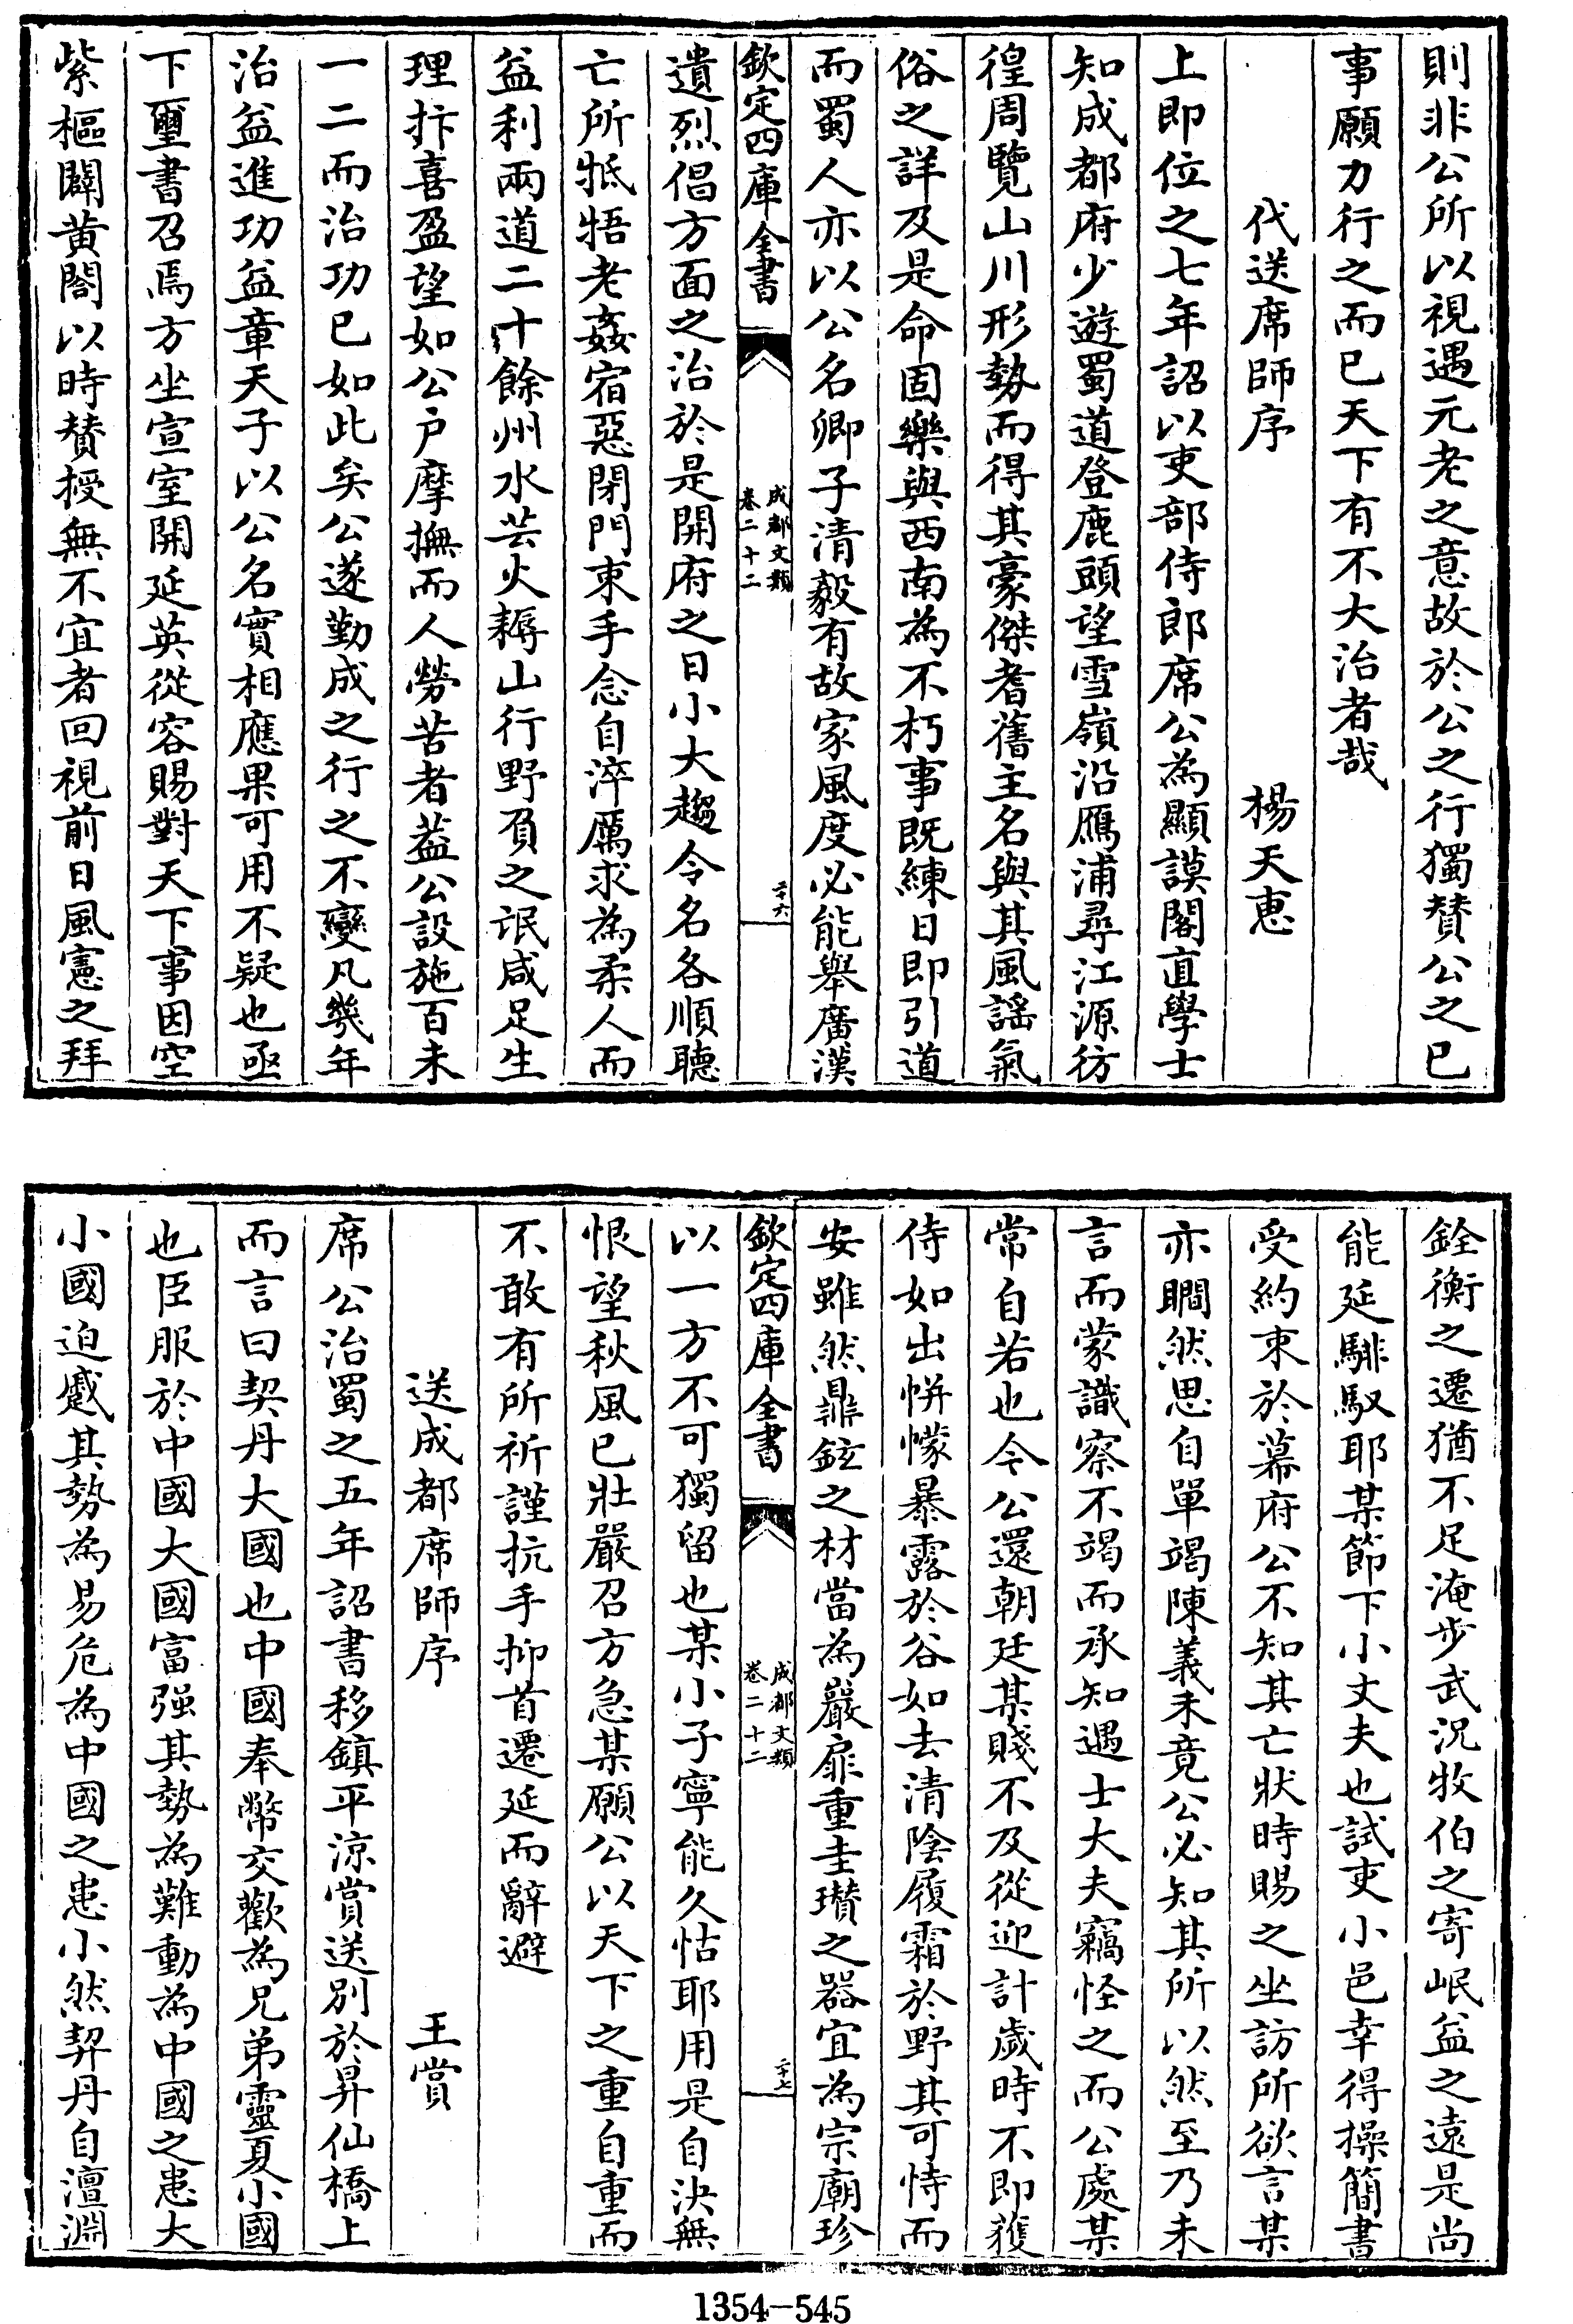 則非公所以視遇元老之意故於公之行獨賛公之已
事願力行之而已天下有不大治者哉
代送席師序　楊天惠
上即位之七年詔以吏部侍郎席公為顯謨閣直學士
知成都府少遊蜀道登鹿頭望雪嶺沿鴈浦尋江源彷
徨周覽山川形勢而得其豪傑耆舊主名與其風謡氣
俗之詳及是命固樂與西南為不朽事既練日即引道
而蜀人亦以公名卿子清毅有故家風度必能舉廣漢
欽定四庫全書　成都文類卷二十二　二十六
遺烈倡方面之治於是開府之日小大趨令名各順聽
亡所牴牾老姦宿惡閉門束手念自淬厲求為柔人而
益利兩道二十餘州水芸火耨山行野負之氓咸足生
理抃喜盈望如公户摩撫而人勞苦者葢公設施百未
一二而治功已如此矣公遂勤成之行之不變凡幾年
治益進功益章天子以公名實相應果可用不疑也亟
下璽書召焉方坐宣室開延英從容賜對天下事因空
紫樞闢黄閤以時賛授無不宜者回視前日風憲之拜
銓衡之遷猶不足淹步武况牧伯之寄岷益之遠是尚
能延騑馭耶某節下小丈夫也試吏小邑幸得操簡書
受約束於幕府公不知其亡狀時賜之坐訪所欲言某
亦瞷然思自單竭陳義未竟公必知其所以然至乃未
言而蒙識察不竭而承知遇士大夫竊怪之而公處某
常自若也今公還朝廷某賤不及從迎計歲時不即獲
侍如出帡幪暴露於谷如去清陰履霜於野其可恃而
安雖然鼎鉉之材當為嚴扉重圭瓚之器宜為宗廟珍
欽定四庫全書　成都文類卷二十二　二十七
以一方不可獨留也某小子寧能久怙耶用是自決無
恨望秋風已壯嚴召方急某願公以天下之重自重而
不敢有所祈謹抗手抑首遷延而辭避
送成都席師序　王賞
席公治蜀之五年詔書移鎮平涼賞送别於昇仙橋上
而言曰契丹大國也中國奉幣交歡為兄弟靈夏小國
也臣服於中國大國富强其勢為難動為中國之患大
小國迫蹙其勢為易危為中國之患小然契丹自澶淵
1354-545